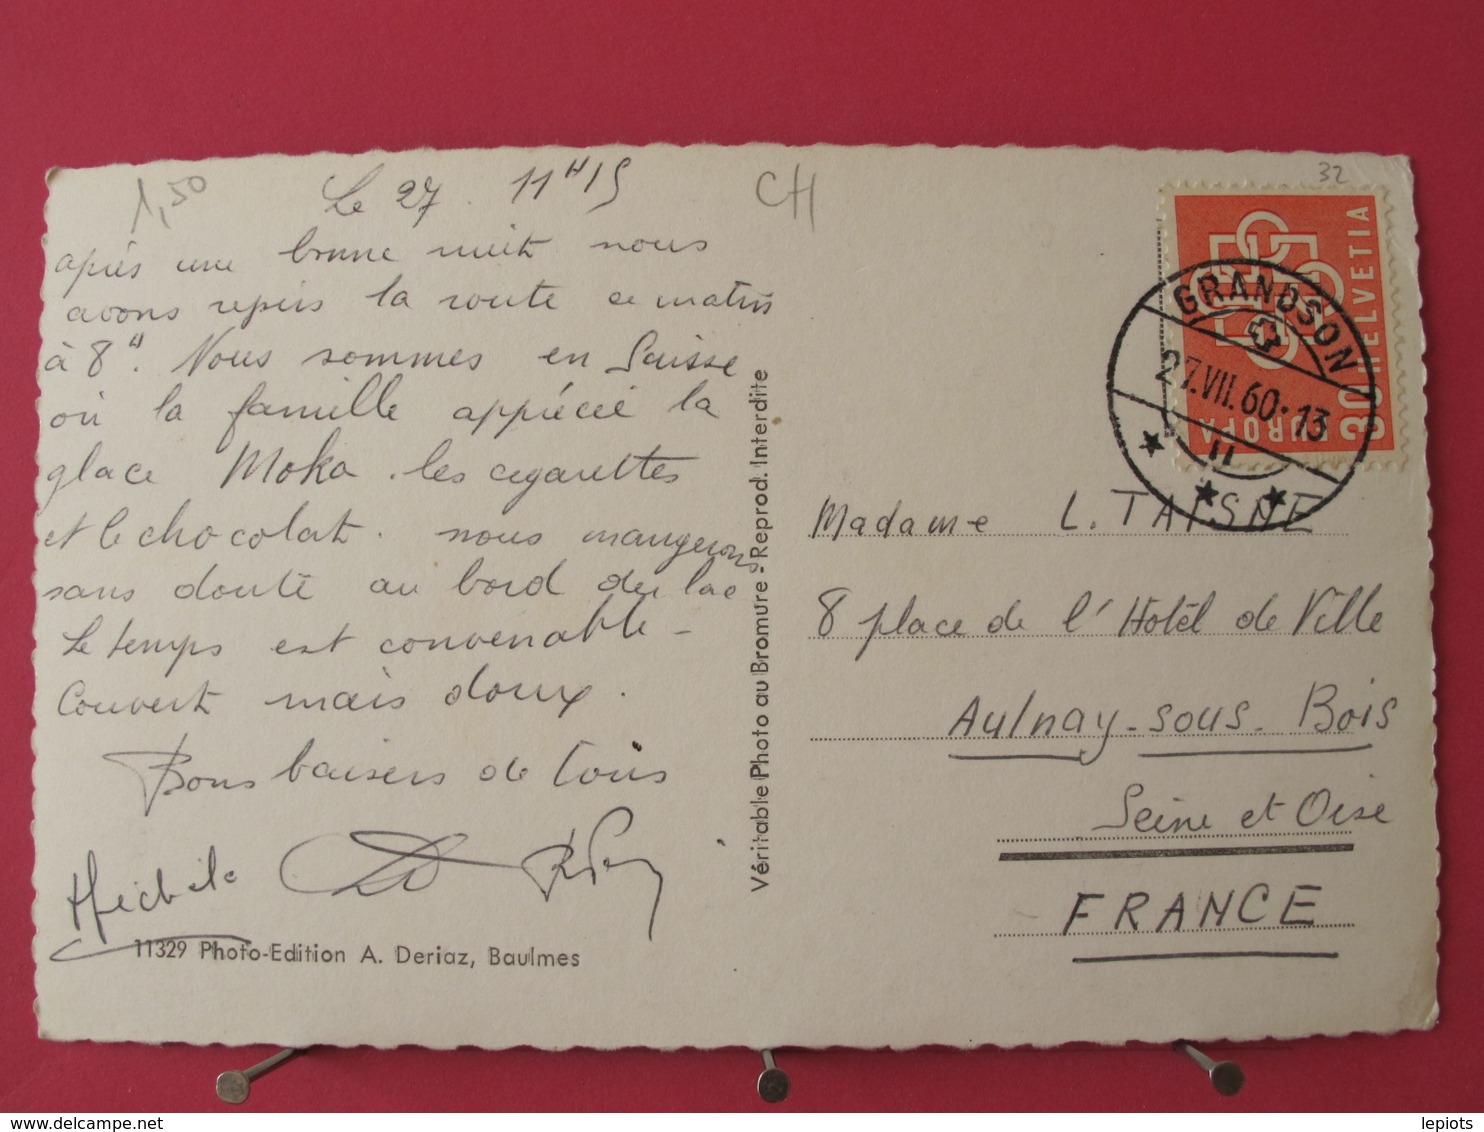 1,50
CH
32
Le 27. 11H15
après une bonne nuit nous
avons repris la route ce matin
à 8H. Nous sommes en Suisse
où la famille apprécié la
glace Moka. les cigarettes
et le chocolat. nous mangerons
sans doute au bord du lac
Le temps est convenable -
Couvert mais doux.
Bons baisers de tous
Michèle
11329 Photo-Edition A. Deriaz, Baulmes
Véritable Photo au Bromure - Reprod. Interdite
HELVETIA
30
EUROPA
GRANDSON
27.VII.60.13
Madame L. TAISNE
8 place de l'Hotel de Ville
Aulnay-sous-Bois
Seine et Oise
FRANCE
lepiots